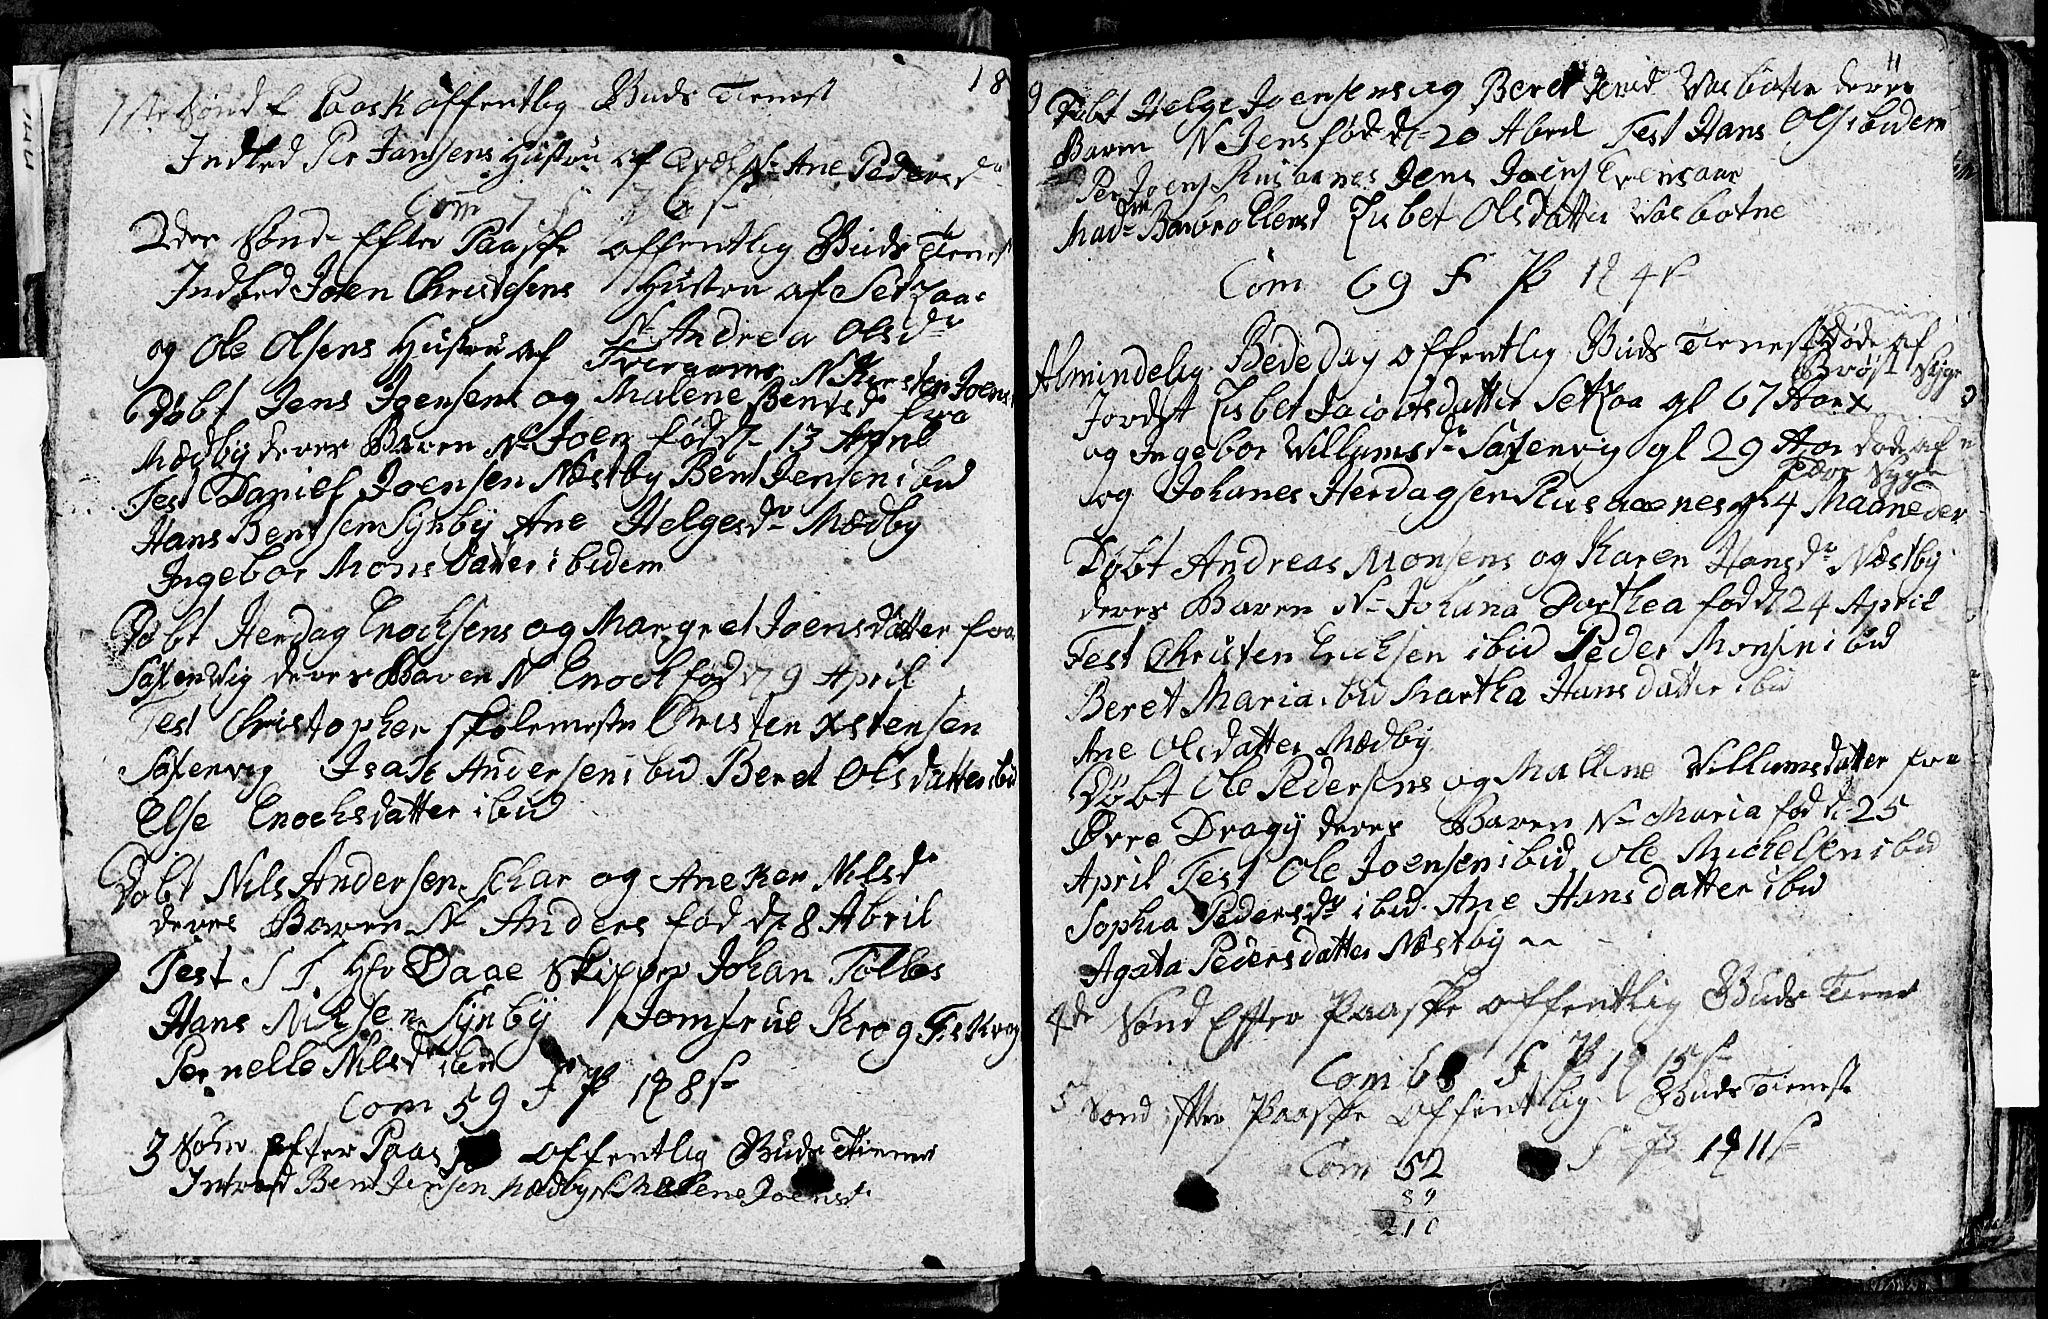 18
1ste Sønd f Paask offentlig Guds Tienest
Indled Per Jansens Hustru af N Ane Peders d
Com 7
2der Sønd Efter Paaske offentlig Guds Tienest
Indled Joen Christesens Hustru af Setzaa
N Andrea Olsdr
og Ole Olsens Hustru af N Kirsten Joens
Døbt Jens Joensens og Malene Bentsdr fra
Mædby deres Baren N Joen født 13 April
Test Daniel Joensen Næstby Bent Jensen ibid
Hans Bentsen Synby Ane Helgesdr Mædby
Ingebor Monsdatter ibidem
Døbt Herdag Enochsens og Margret Joensdatter fra
Saxenvig deres Baren N Enoch fød d 9 April
Test Christopher skolemester Christen xstensen
Saxenvig Isak Andersen ibid Beret Olsdatter ibid
Else Enochsdatter ibid
Døbt Nils Andersen Schar og Aneken Nilsd
deres Baren N Anders fød d 8 Abril
Test S T Hr Daae Skipper Johan Tolbes
Hans Nilsen Synby Jomfrue Krog Fr Krog
Pernelle Nilsdr ibid
Com 59 F P 1 8 s
3 Sønd efter Paaske offentlig Guds Tienest
Introd Bent Jensen Mædby N Malene Joensd
9
11
Døbt Helge Joensens og Beret Vasbotn deres
Baren N Jens fød d 20 Abril Test Hans Ols ibidem
Per Joens Rusaanes Jens Joens Evensaar
Mad Barbro Ellensd Lisbet Olsdatter Vasbotne
Com 69 F P 1 4 s
Almindelig Bededag offentlig Guds Tienest døde af
Brøst Syge
Jordf Lisbet Jacobsdatter Setzaa gl 67 Aar
og Ingebor Villumsdr Saxenvig gl 29 Aar død af
Syge
og Johanes Herdagsen Rusaanes gl 4 Maaneder
Døbt Andreas Monsens og Karen Hansdr Næstby
deres Baren N Johana Dorthea fød d 24 April
Test Christen Erichsen ibid Peder Monsen ibid
Beret Maria ibid Martha Hansdatter ibid
Ane Olsdatter Mædby
Døbt Ole Pedersens og Malline Villumsdatter fra
Øvre Dragy deres Baren N Maria fød d 25
April Test Ole Joensen ibid Ole Michelsen ibid
Sophia Pedersdr ibid Ane Hansdatter ibid
Agata Pedersdatter Næstby
4de Sønd Efter Paaske offentlig Guds Tienest
Com 68 F P 1 15 s
5 Sønd efter Paaske offentlig Guds Tienest
Com 52 F P 1 11 s
89
210